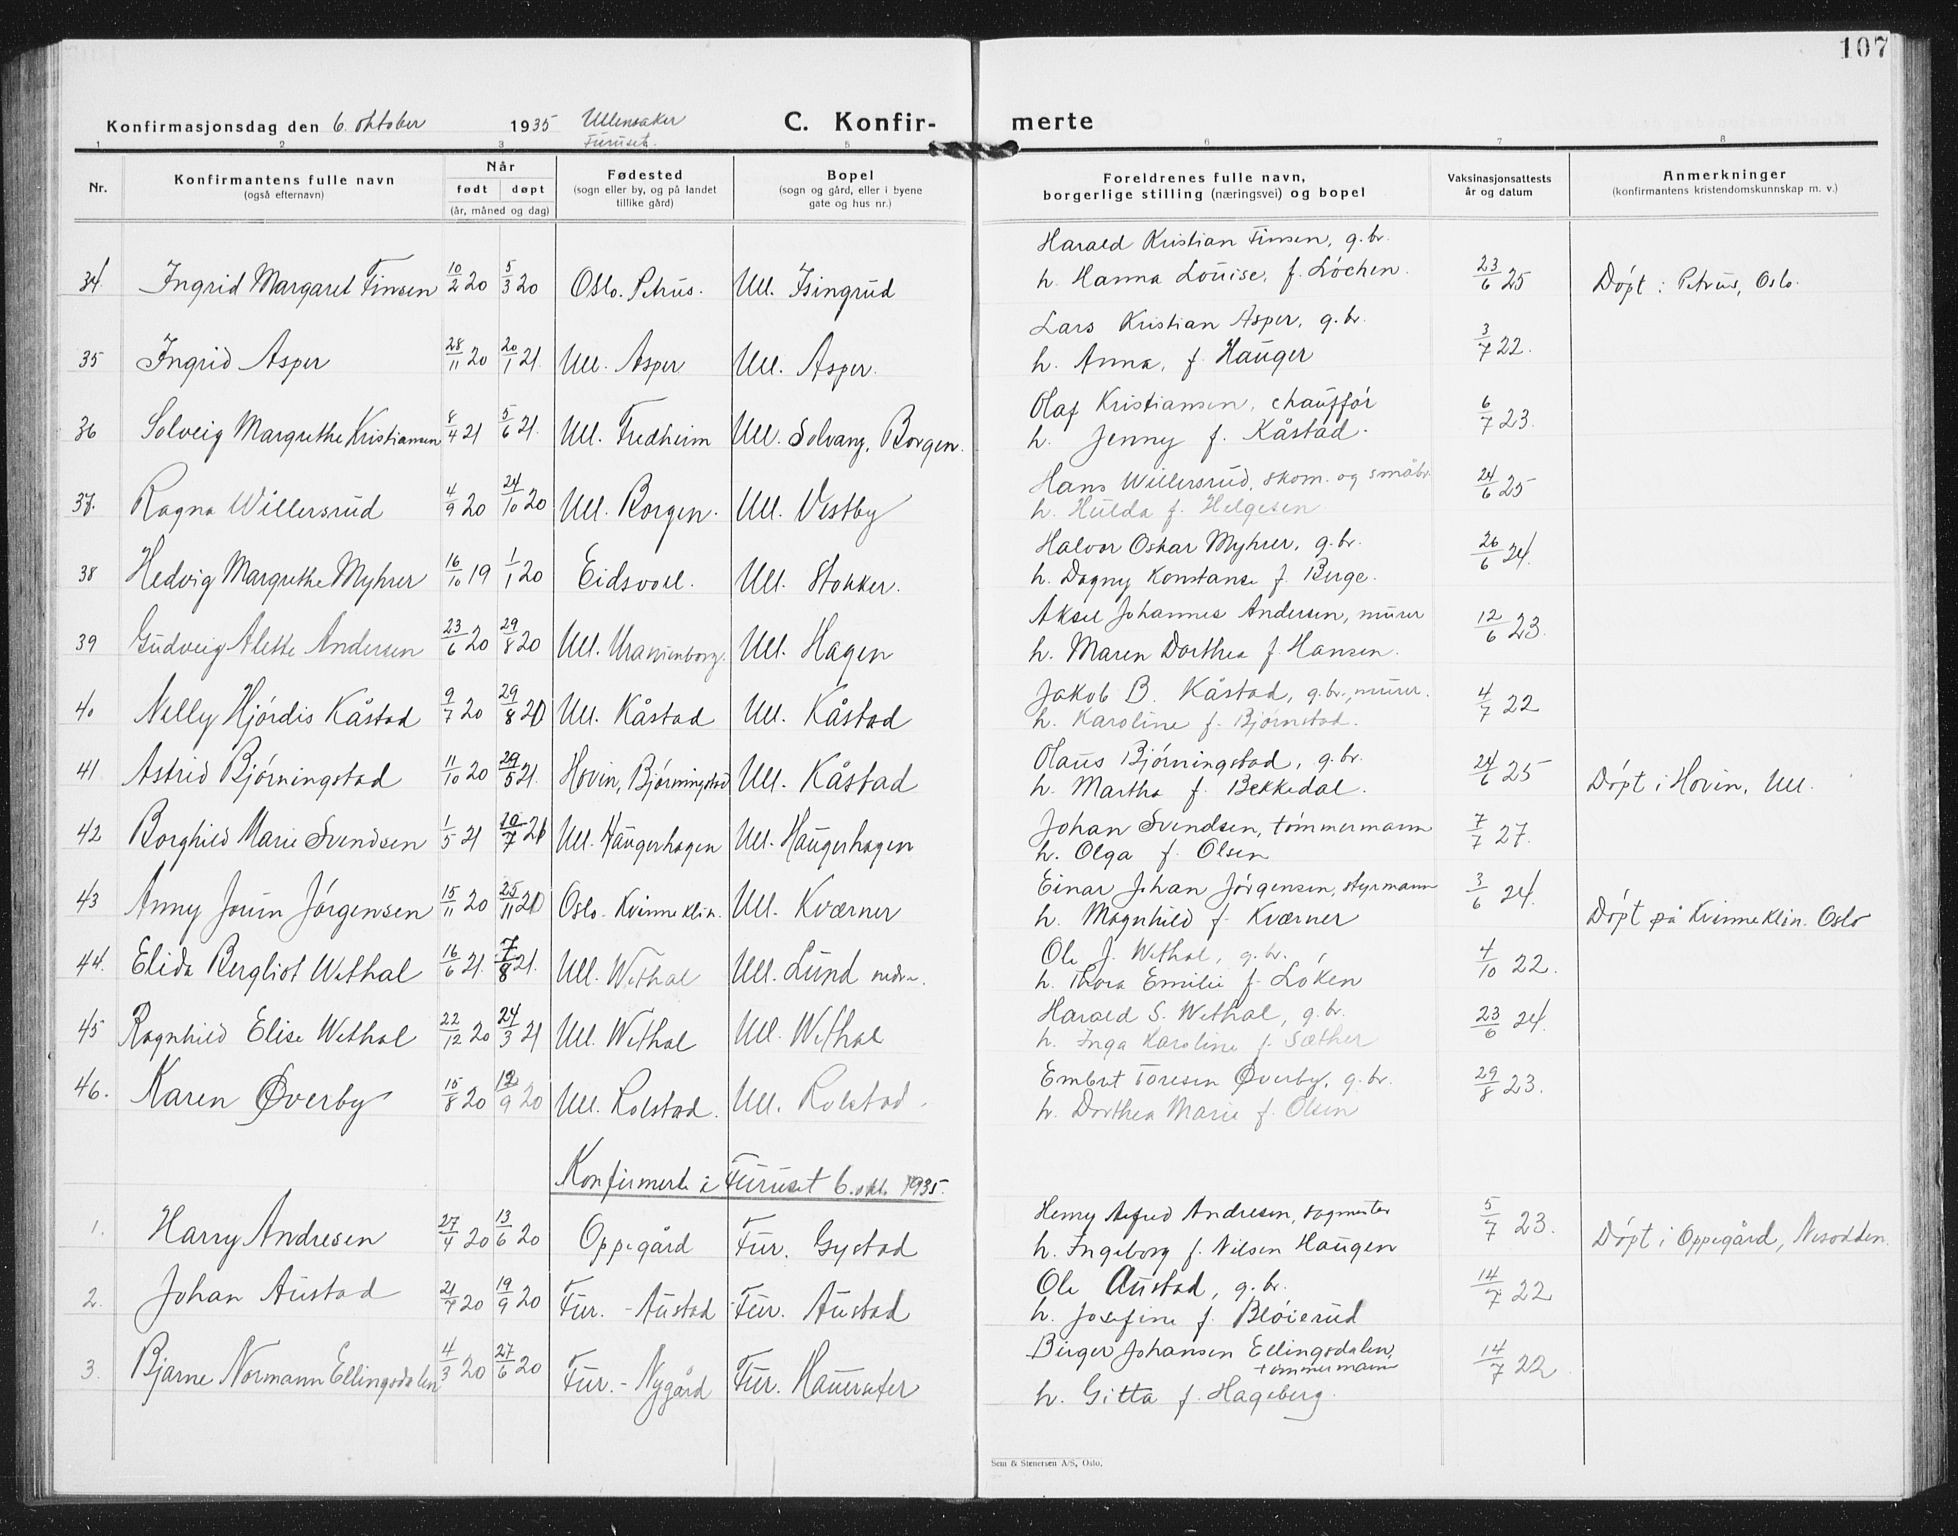 107
Konfirmasjonsdag den 6. oktober 1935 Ullensaker
Furuset.
C. Konfir- merte
1 2 3 5 6 7 8
Nr.
Konfirmantens fulle navn
(også efternavn)
Når
født døpt
(år, måned og dag)
Fødested
(sogn eller by, og på landet
tillike gård)
Bopel
(sogn og gård, eller i byene
gate og hus nr.)
Foreldrenes fulle navn,
borgerlige stilling (næringsvei) og bopel
Vaksinasjonsattests
år og datum
Anmerkninger
(konfirmantens kristendomskunnskap m. v.)
Harald Kristian Finsen, g.br.
34. Ingrid Margaret Finsen 10/2 20 5/3 20 Oslo. Petrus. Ull. Isingrud h. Hanna Louise, f. Løchen. 23/6 25 Døpt i Petrus, Oslo.
Lars Kristian Asper, g.br.
35 Ingrid Asper 28/11 20 20/1 21. Ull. Asper Ull. Asper. h. Anna, f. Hauger 3/7 22.
Olaf Kristiansen, chauffør
36 Solveig Margrethe Kristiansen 8/4 21 5/6 21. Ull. Fredheim Ull. Solvang, Borgen. h. Jenny f. Kåstad. 6/7 23.
Hans Willersrud, skom. og småbr.
37. Ragna Willersrud 4/9 20 24/10 20 Ull. Borgen. Ull. Vestby h. Hulda f. Helgesen 24/6 25
Halvor Oskar Myhrer, g.br.
38 Hedvig Margrethe Myhrer 16/10 19 1/1 20 Eidsvoll. Ull. Stokker. h. Dagny Konstanse f. Berge. 26/6 24.
Aksel Johannes Andersen, murer
39 Gudveig Alette Andersen 23/6 20 29/8 20 Ull. Uranienborg. Ull. Hagen h. Maren Dorthea f. Hansen. 12/6 23.
Jakob B. Kåstad, g.br., murer.
40 Nelly Hjørdis Kåstad 9/7 20 29/8 20 Ull. Kåstad Ull. Kåstad h. Karoline f. Bjørnstad. 4/7 22
Olaus Bjørningstad, g.br.
41 Astrid Bjørningstad 11/10 20 29/5 21. Hovin, Bjørningstad Ull. Kåstad h. Martha f. Bekkedal. 24/6 25 Døpt i Hovin, Ull.
Johan Svendsen, tømmermann
42 Borghild Marie Svendsen 1/5 21 10/7 21 Ull. Haugerhagen Ull. Haugerhagen h. Olga f. Olsen 7/7 27.
Einar Johan Jørgensen, styrmann
43 Anny Joun Jørgensen 15/11 20 25/11 20 Oslo. Kvinneklin. Ull. Kværner h. Magnhild f. Kværner 3/6 24. Døpt på Kvinneklin. Oslo
Ole J. Wethal, g.br.
44. Elida Bergliot Wethal 16/6 21. 7/8 21. Ull. Wethal Ull. Lund nedre. h. Thora Emilie f. Løken 4/10 22.
Harald S. Wethal, g.br.
45 Ragnhild Elise Wethal 22/12 20 24/3 21 Ull. Wethal Ull. Wethal h. Inga Karoline f. Sæther 23/6 24.
Embret Toresen Øverby, g.br.
46. Karen Øverby 15/8 20 12/9 20 Ull. Lolstad. Ull. Lolstad. h. Dorthea Marie f. Olsen 29/8 23.
Konfirmerte i Furuset 6. okt. 1935.
Henry Alfred Andresen, sagmester
1. Harry Andresen 27/4 20 13/6 20 Oppegård Fur. Gystad h. Ingeborg f. Nilsen Haugen 5/7 23. Døpt i Oppegård, Nesodden.
Ole Austad, g.br.
2. Johan Austad 21/7 20 19/9 20 Fur. - Austad Fur. Austad h. Josefine f. Bløierud 14/7 22
Birger Johansen Ellingsdalen,
tømmermann
3. Bjarne Normann Ellingsdalen 4/3 20 27/6 20 Fur. - Nygård Fur. Hauerseter h. Gitta f. Hageberg. 14/7 22
Sem & Stenersen A/S, Oslo.